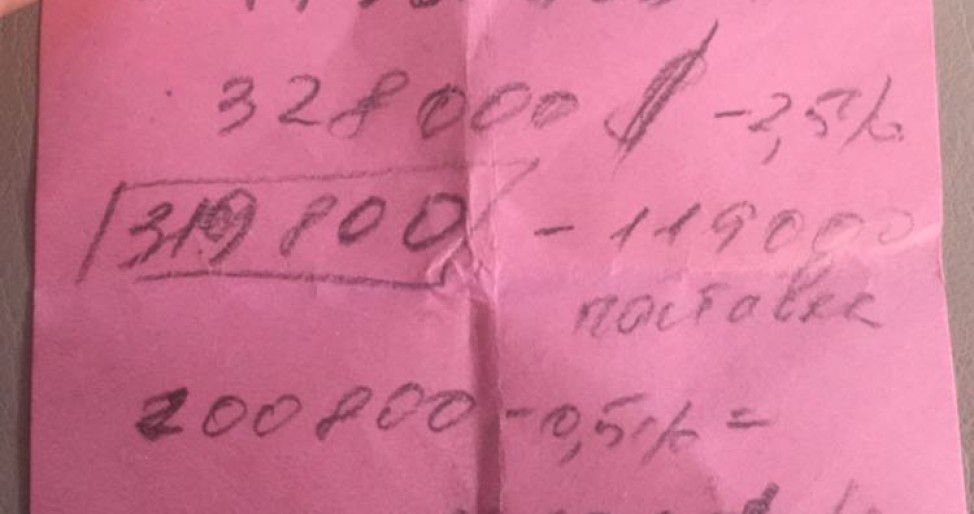 328000 $ -2,5%
319 800 - 119000
поставка
200800 - 0,5% =